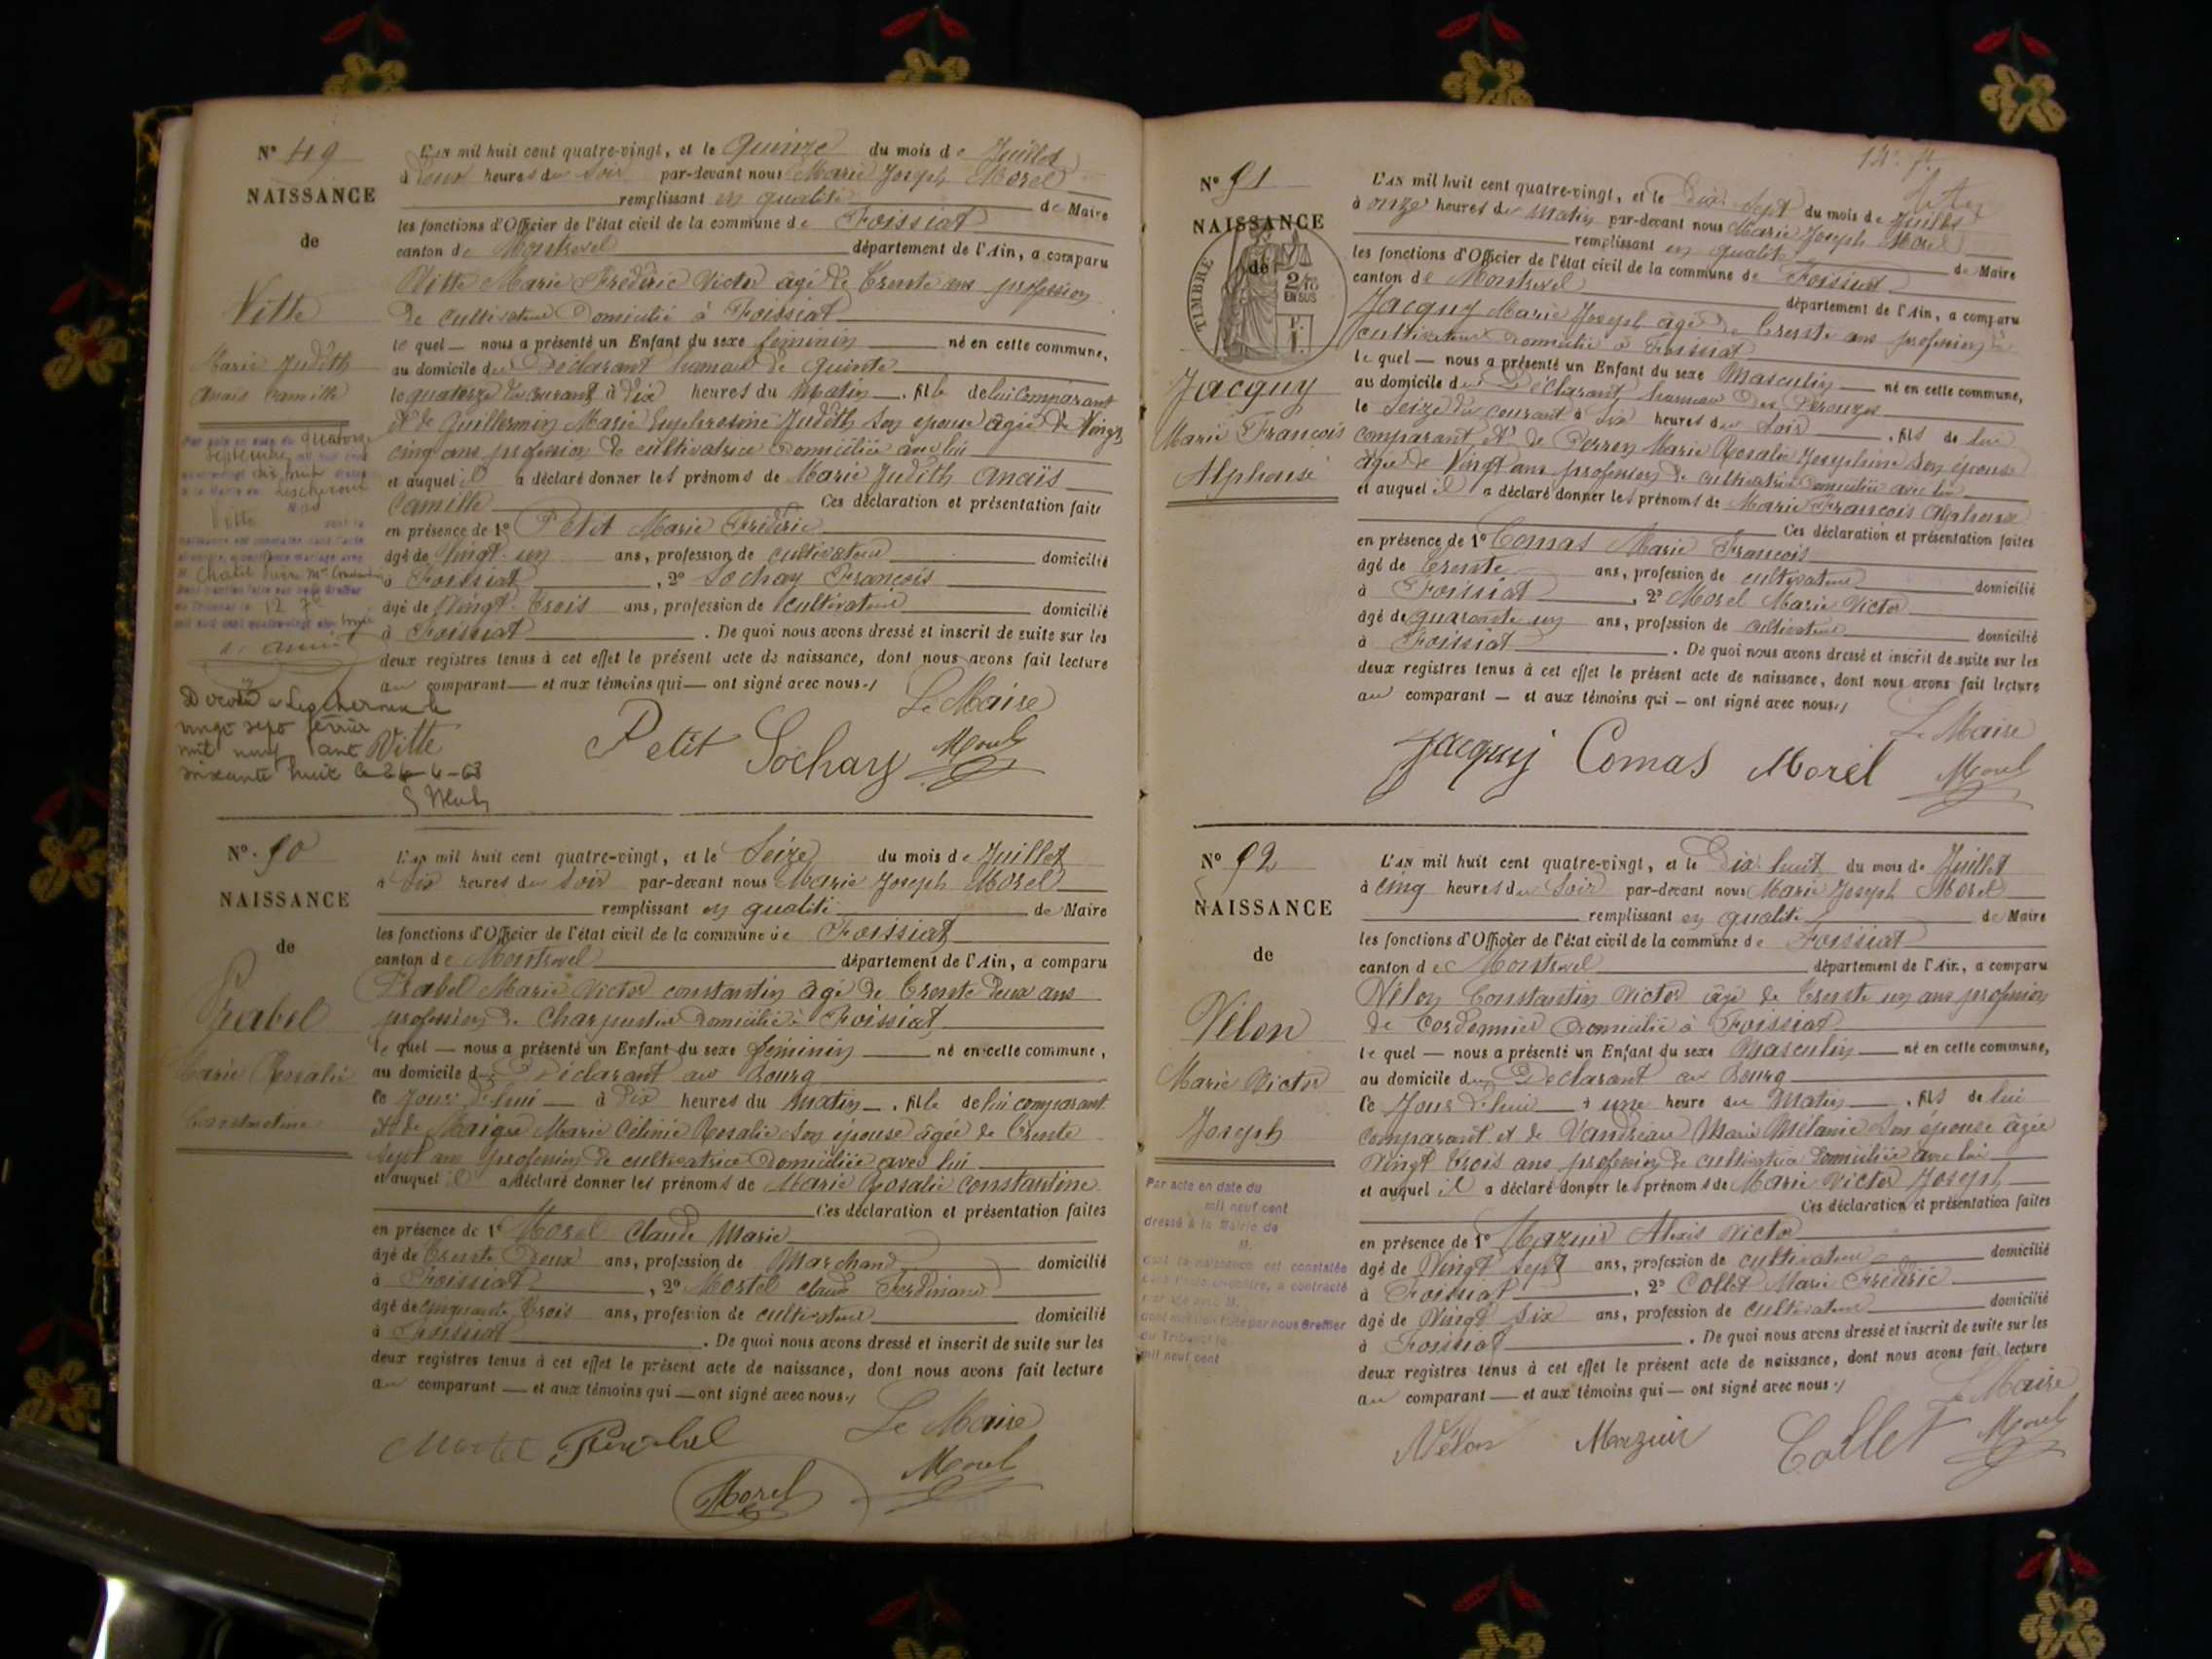 N° 49
NAISSANCE
de
Vitte
Marie Judith
Anaïs Camille
L'AN mil huit cent quatre-vingt, et le Quinze du mois de Juillet
à Deux heures du Soir par-devant nous Marie Joseph Morel
remplissant en qualité de Maire
les fonctions d'Officier de l'état civil de la commune de Foissiat
canton de Montrevel département de l'Ain, a comparu
Vitte Marie Frédéric Victor âgé de Trente ans profession
de cultivateur Domicilié à Foissiat
le quel — nous a présenté un Enfant du sexe féminin né en cette commune,
au domicile du Déclarant hameau de
le quatorze du courant à Dix heures du Matin . fille de lui comparant
et de Guillermin Marie Euphrosine Judith son épouse âgée de Vingt
cinq ans profession de cultivatrice Domiciliée avec lui
et auquel il a déclaré donner les prénoms de Marie Judith Anaïs
Camille Ces déclaration et présentation faite
en présence de 1° Petit Marie Frédéric
âgé de Vingt un ans, profession de cultivateur domicilié
à Foissiat , 2° Sochay François
âgé de Vingt Trois ans, profession de cultivateur domicilié
à Foissiat . De quoi nous avons dressé et inscrit de suite sur les
deux registres tenus à cet effet le présent acte de naissance, dont nous avons fait lecture
au comparant — et aux témoins qui — ont signé avec nous
Le Maire
Vitte Petit Sochay Morel
Par acte en date du quatorze
septembre mil neuf cent
dix huit
à la Mairie de Lescheroux
Vitte
naissance est constatée dans l'acte
ci-contre, a contracté mariage avec
M. Chatel
dont mention faite par nous Greffier
du Tribunal le 12 7bre
Décédée à Lescheroux le
vingt sept février
mil neuf cent
soixante huit le 26-4-68
N° 50
NAISSANCE
de
Prabel
Marie Rosalie
Constantine
L'AN mil huit cent quatre-vingt, et le Seize du mois de Juillet
à Six heures du Soir par-devant nous Marie Joseph Morel
remplissant en qualité de Maire
les fonctions d'Officier de l'état civil de la commune de Foissiat
canton de Montrevel département de l'Ain, a comparu
Prabel Marie Victor constantin âgé de Trente Deux ans
profession de Charpentier Domicilié à Foissiat
le quel — nous a présenté un Enfant du sexe féminin né en cette commune,
au domicile du Déclarant au Bourg
le Jour d'hui — à Dix heures du Matin — . fille de lui comparant
et de Maigre Marie Célinie Rosalie son épouse âgée de Trente
sept ans profession de cultivatrice Domiciliée avec lui
et auquel il a déclaré donner les prénoms de Marie Rosalie Constantine
Ces déclaration et présentation faites
en présence de 1° Morel Claude Marie
âgé de Trente Deux ans, profession de Marchand domicilié
à Foissiat , 2° Mortel Claude Ferdinand
âgé de cinquante Trois ans, profession de cultivateur domicilié
à Foissiat . De quoi nous avons dressé et inscrit de suite sur les
deux registres tenus à cet effet le présent acte de naissance, dont nous avons fait lecture
au comparant — et aux témoins qui — ont signé avec nous
Le Maire
Mortel Prabel Morel Morel
N° 51
NAISSANCE
de
TIMBRE
2/10
EN SUS
Jacquy
Marie François
Alphonse
L'AN mil huit cent quatre-vingt, et le Dix Sept du mois de Juillet
à onze heures du matin par-devant nous Marie Joseph Morel
remplissant en qualité de Maire
les fonctions d'Officier de l'état civil de la commune de Foissiat
canton de Montrevel département de l'Ain, a comparu
Jacquy Marie Joseph âgé de Trente ans profession de
cultivateur Domicilié à Foissiat
le quel — nous a présenté un Enfant du sexe Masculin — né en cette commune,
au domicile du Déclarant hameau des
le Seize du courant à Six heures du Soir . fils de lui
comparant et de Perren Marie Rosalie Josephine son épouse
âgée de Vingt ans profession de cultivatrice Domiciliée avec lui
et auquel il a déclaré donner les prénoms de Marie François Alphonse
Ces déclaration et présentation faites
en présence de 1° Comas Marie François
âgé de Trente ans, profession de cultivateur domicilié
à Foissiat , 2° Morel Marie Victor
âgé de quarante un ans, profession de cultivateur domicilié
à Foissiat . De quoi nous avons dressé et inscrit de suite sur les
deux registres tenus à cet effet le présent acte de naissance, dont nous avons fait lecture
au comparant — et aux témoins qui — ont signé avec nous
Le Maire
Jacquy Comas Morel Morel
N° 52
NAISSANCE
de
Vélon
Marie Victor
Joseph
L'AN mil huit cent quatre-vingt, et le Dix huit du mois de Juillet
à cinq heures du Soir par-devant nous Marie Joseph Morel
remplissant en qualité de Maire
les fonctions d'Officier de l'état civil de la commune de Foissiat
canton de Montrevel département de l'Ain, a comparu
Vélon Constantin Victor âgé de Trente un ans profession
de Cordonnier Domicilié à Foissiat
le quel — nous a présenté un Enfant du sexe Masculin — né en cette commune,
au domicile du Déclarant au Bourg
le Jour d'hui — à une heure du Matin — . fils de lui
comparant et de Vandreau Marie Mélanie son épouse âgée
Vingt Trois ans profession de cultivatrice Domiciliée avec lui
et auquel il a déclaré donner les prénoms de Marie Victor Joseph
Ces déclaration et présentation faites
en présence de 1° Mazuir Alexis Victor
âgé de Vingt Sept ans, profession de cultivateur domicilié
à Foissiat , 2° Collet Marie Frédéric
âgé de Vingt Six ans, profession de cultivateur domicilié
à Foissiat . De quoi nous avons dressé et inscrit de suite sur les
deux registres tenus à cet effet le présent acte de naissance, dont nous avons fait lecture
au comparant — et aux témoins qui — ont signé avec nous
Le Maire
Vélon Mazuir Collet Morel
Par acte en date du
mil neuf cent
dressé à la Mairie de
M.
dont la naissance est constatée
dans l'acte ci-contre, a contracté
mariage avec M.
dont mention faite par nous Greffier
du Tribunal le
mil neuf cent